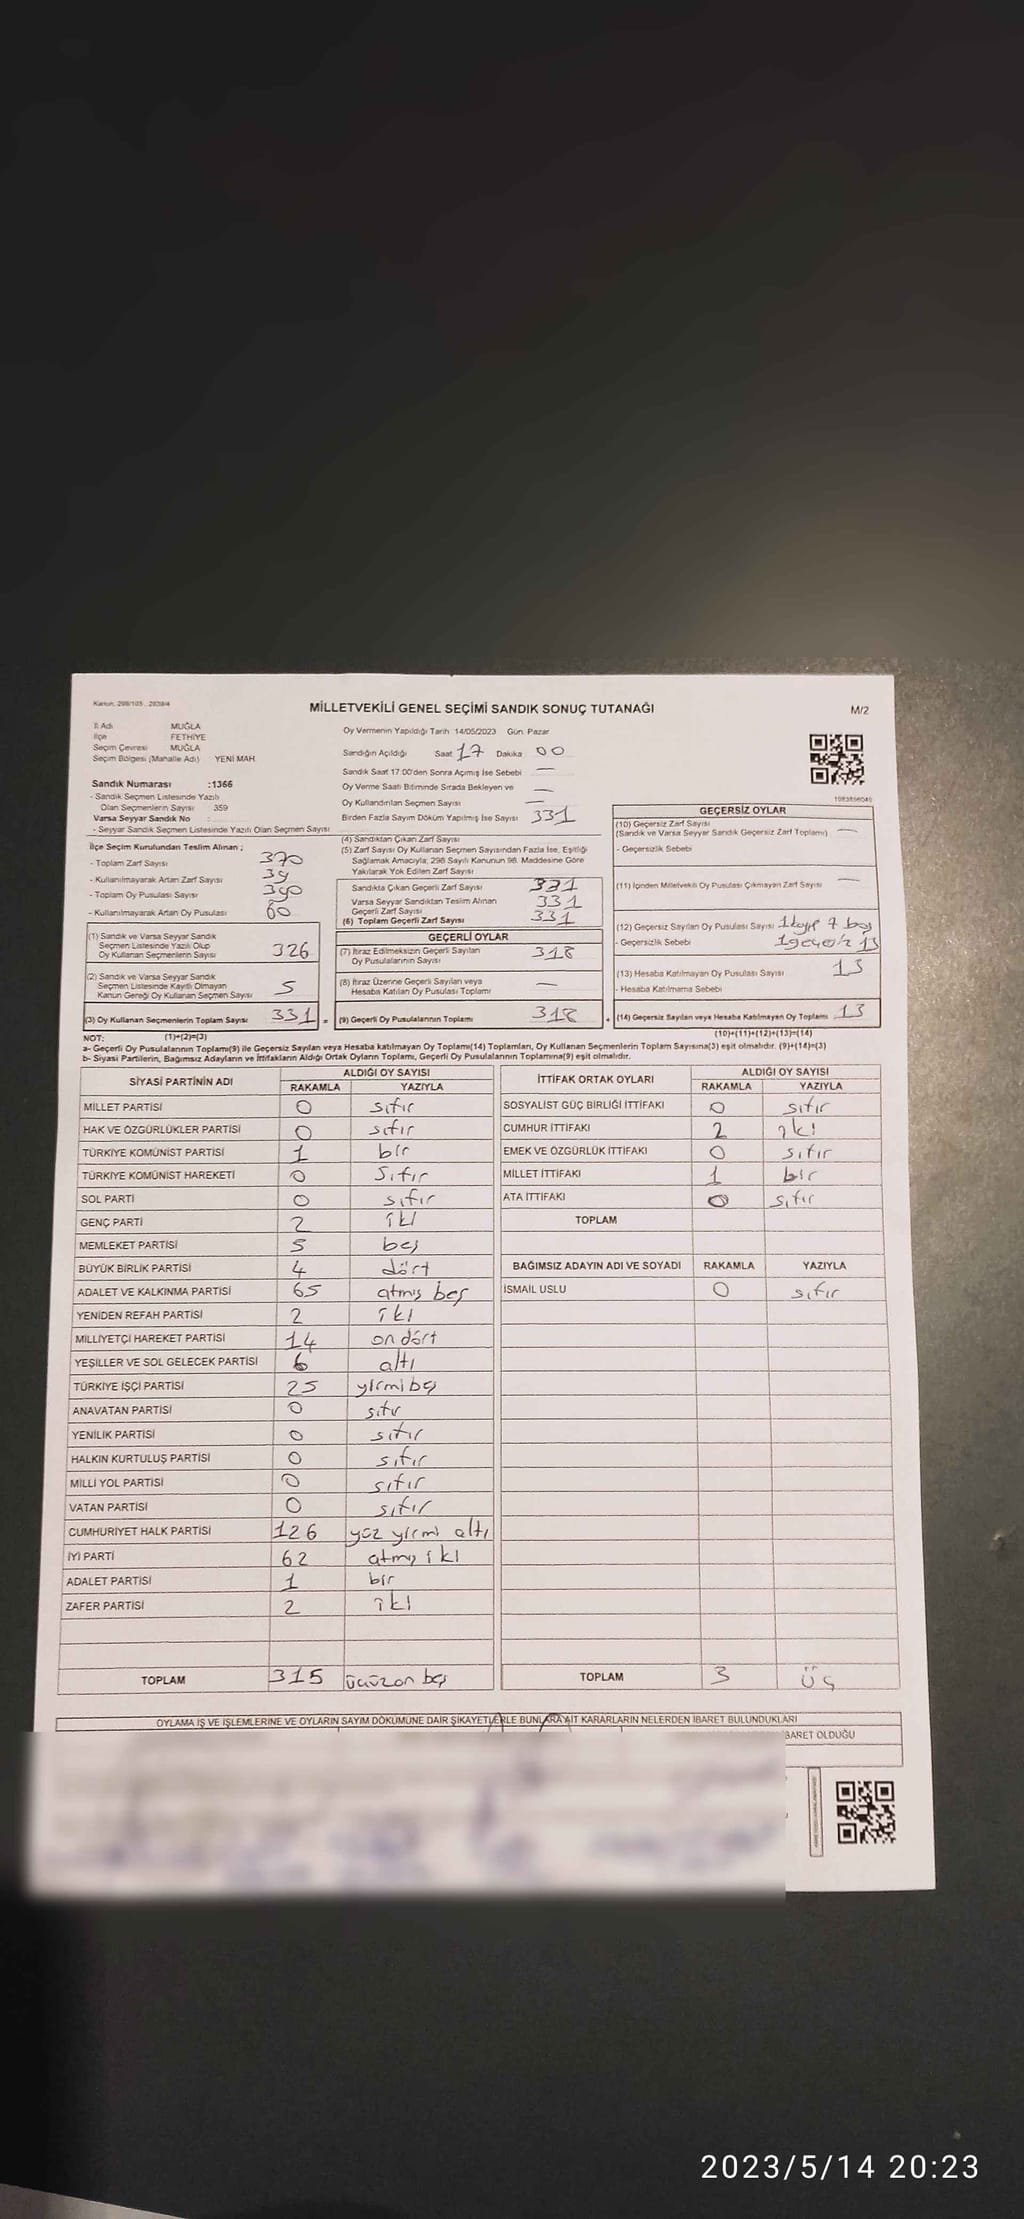 MİLLETVEKİLİ GENEL SEÇİMİ SANDIK SONUÇ TUTANAĞI
M/2
İl Adı MUĞLA
İlçe FETHİYE
Seçim Çevresi MUĞLA
Seçim Bölgesi (Mahalle Adı) YENİ MAH.
Sandık Numarası :1366
- Sandık Seçmen Listesinde Yazılı
Olan Seçmenlerin Sayısı 359
Varsa Seyyar Sandık No
- Seyyar Sandık Seçmen Listesinde Yazılı Olan Seçmen Sayısı
İlçe Seçim Kurulundan Teslim Alınan ;
- Toplam Zarf Sayısı 370
- Kullanılmayarak Artan Zarf Sayısı 39
- Toplam Oy Pusulası Sayısı 390
- Kullanılmayarak Artan Oy Pusulası 60
(1) Sandık ve Varsa Seyyar Sandık
Seçmen Listesinde Yazılı Olup
Oy Kullanan Seçmenlerin Sayısı 326
(2) Sandık ve Varsa Seyyar Sandık
Seçmen Listesinde Kayıtlı Olmayan
Kanun Gereği Oy Kullanan Seçmen Sayısı 5
(3) Oy Kullanan Seçmenlerin Toplam Sayısı 331 =
Oy Vermenin Yapıldığı Tarih 14/05/2023 Gün. Pazar
Sandığın Açıldığı Saat 17 Dakika 00
Sandık Saat 17:00'den Sonra Açımış İse Sebebi —
Oy Verme Saati Bitiminde Sırada Bekleyen ve —
Oy Kullandırılan Seçmen Sayısı —
Birden Fazla Sayım Döküm Yapılmış İse Sayısı 331
(4) Sandıktan Çıkan Zarf Sayısı
(5) Zarf Sayısı Oy Kullanan Seçmen Sayısından Fazla İse, Eşitliği
Sağlamak Amacıyla; 298 Sayılı Kanunun 98. Maddesine Göre
Yakılarak Yok Edilen Zarf Sayısı
Sandıkta Çıkan Geçerli Zarf Sayısı 331
Varsa Seyyar Sandıktan Teslim Alınan
Geçerli Zarf Sayısı 331
(6) Toplam Geçerli Zarf Sayısı 331
GEÇERLİ OYLAR
(7) İtiraz Edilmeksizin Geçerli Sayılan
Oy Pusulalarının Sayısı 318
(8) İtiraz Üzerine Geçerli Sayılan veya
Hesaba Katılan Oy Pusulası Toplamı —
(9) Geçerli Oy Pusulalarının Toplamı 318 +
GEÇERSİZ OYLAR
(10) Geçersiz Zarf Sayısı
(Sandık ve Varsa Seyyar Sandık Geçersiz Zarf Toplamı) —
- Geçersizlik Sebebi
(11) İçinden Milletvekili Oy Pusulası Çıkmayan Zarf Sayısı —
(12) Geçersiz Sayılan Oy Pusulası Sayısı
- Geçersizlik Sebebi
(13) Hesaba Katılmayan Oy Pusulası Sayısı 13
- Hesaba Katılmama Sebebi
(14) Geçersiz Sayılan veya Hesaba Katılmayan Oy Toplamı 13
NOT: (1)+(2)=(3)
(10)+(11)+(12)+(13)=(14)
a- Geçerli Oy Pusulalarının Toplamı(9) ile Geçersiz Sayılan veya Hesaba katılmayan Oy Toplamı(14) Toplamları, Oy Kullanan Seçmenlerin Toplam Sayısına(3) eşit olmalıdır. (9)+(14)=(3)
b- Siyasi Partilerin, Bağımsız Adayların ve İttifakların Aldığı Ortak Oyların Toplamı, Geçerli Oy Pusulalarının Toplamına(9) eşit olmalıdır.
SİYASİ PARTİNİN ADI ALDIĞI OY SAYISI
RAKAMLA YAZIYLA
MİLLET PARTİSİ 0 sıfır
HAK VE ÖZGÜRLÜKLER PARTİSİ 0 sıfır
TÜRKİYE KOMÜNİST PARTİSİ 1 bir
TÜRKİYE KOMÜNİST HAREKETİ 0 sıfır
SOL PARTİ 0 sıfır
GENÇ PARTİ 2 iki
MEMLEKET PARTİSİ 5 beş
BÜYÜK BİRLİK PARTİSİ 4 dört
ADALET VE KALKINMA PARTİSİ 65 atmış beş
YENİDEN REFAH PARTİSİ 2 iki
MİLLİYETÇİ HAREKET PARTİSİ 14 on dört
YEŞİLLER VE SOL GELECEK PARTİSİ 6 altı
TÜRKİYE İŞÇİ PARTİSİ 25 yirmi beş
ANAVATAN PARTİSİ 0 sıfır
YENİLİK PARTİSİ 0 sıfır
HALKIN KURTULUŞ PARTİSİ 0 sıfır
MİLLİ YOL PARTİSİ 0 sıfır
VATAN PARTİSİ 0 sıfır
CUMHURİYET HALK PARTİSİ 126 yüz yirmi altı
İYİ PARTİ 62 atmış iki
ADALET PARTİSİ 1 bir
ZAFER PARTİSİ 2 iki
TOPLAM 315 üçüzon beş
İTTİFAK ORTAK OYLARI ALDIĞI OY SAYISI
RAKAMLA YAZIYLA
SOSYALİST GÜÇ BİRLİĞİ İTTİFAKI 0 sıfır
CUMHUR İTTİFAKI 2 iki
EMEK VE ÖZGÜRLÜK İTTİFAKI 0 sıfır
MİLLET İTTİFAKI 1 bir
ATA İTTİFAKI 0 sıfır
TOPLAM
BAĞIMSIZ ADAYIN ADI VE SOYADI RAKAMLA YAZIYLA
İSMAİL USLU 0 sıfır
TOPLAM 3 üç
OYLAMA İŞ VE İŞLEMLERİNE VE OYLARIN SAYIM DÖKÜMÜNE DAİR ŞİKAYETLERLE BUNLARA AİT KARARLARIN NELERDEN İBARET BULUNDUKLARI
BARET OLDUĞU
2023/5/14 20:23